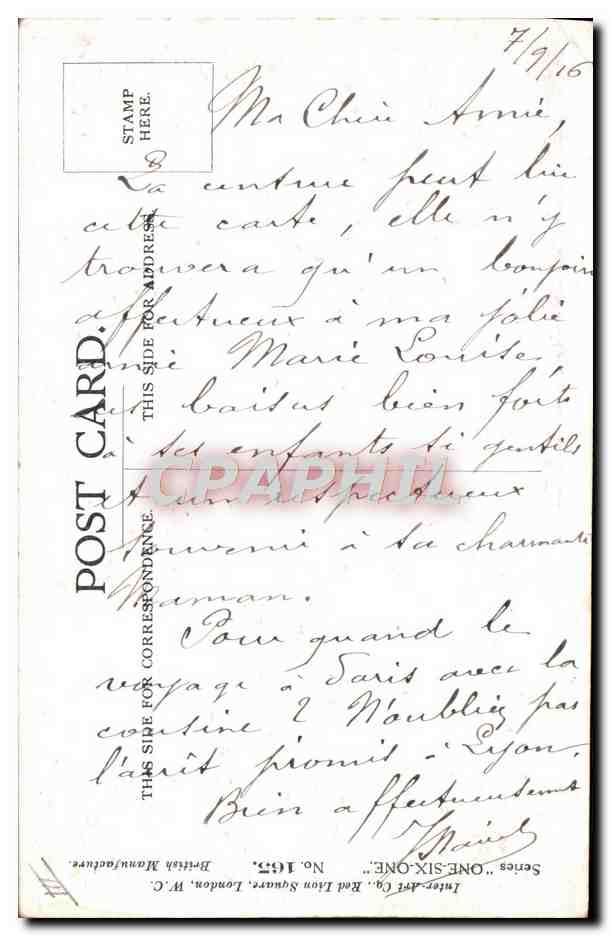 7/9/16
STAMP
HERE.
Ma Chère Amie,
La censure peut lire
cette carte, elle n'y
trouvera qu'un bonjour
affectueux à ma jolie
amie Marie Louise,
des baisers bien forts
à ses enfants si gentils
et un respectueux
souvenir à sa charmante
Maman.
Pour quand le
voyage à Paris avec la
cousine ? N'oubliez pas
l'arrêt promis à Lyon.
Bien affectueusement
POST CARD.
THIS SIDE FOR CORRESPONDENCE.
THIS SIDE FOR ADDRESS.
CPAPHIL
Series "ONE-SIX-ONE." No. 165. British Manufacture.
Inter-Art Co., Red Lion Square, London, W.C.